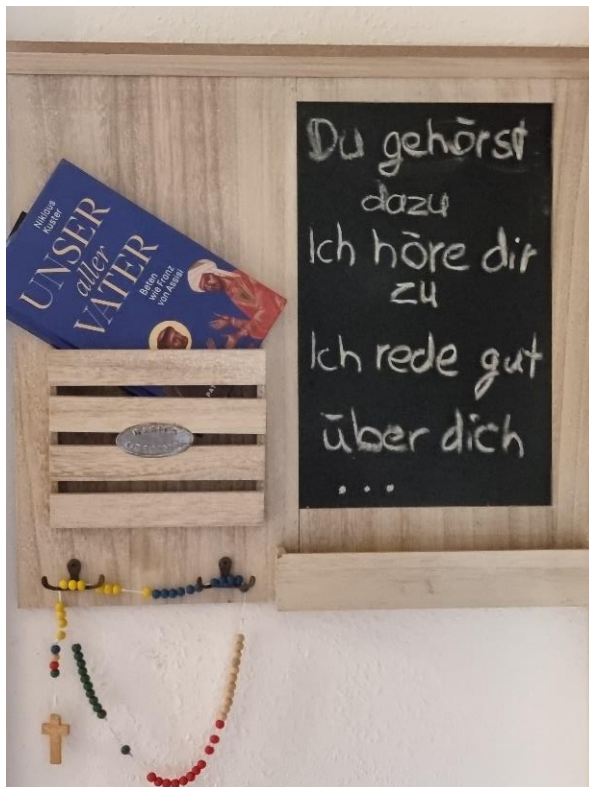 Niklaus
Kuster
UNSER
aller
VATER
Beten
wie Franz
von Assisi
Du gehörst
dazu
Ich höre dir
zu
Ich rede gut
über dich
...